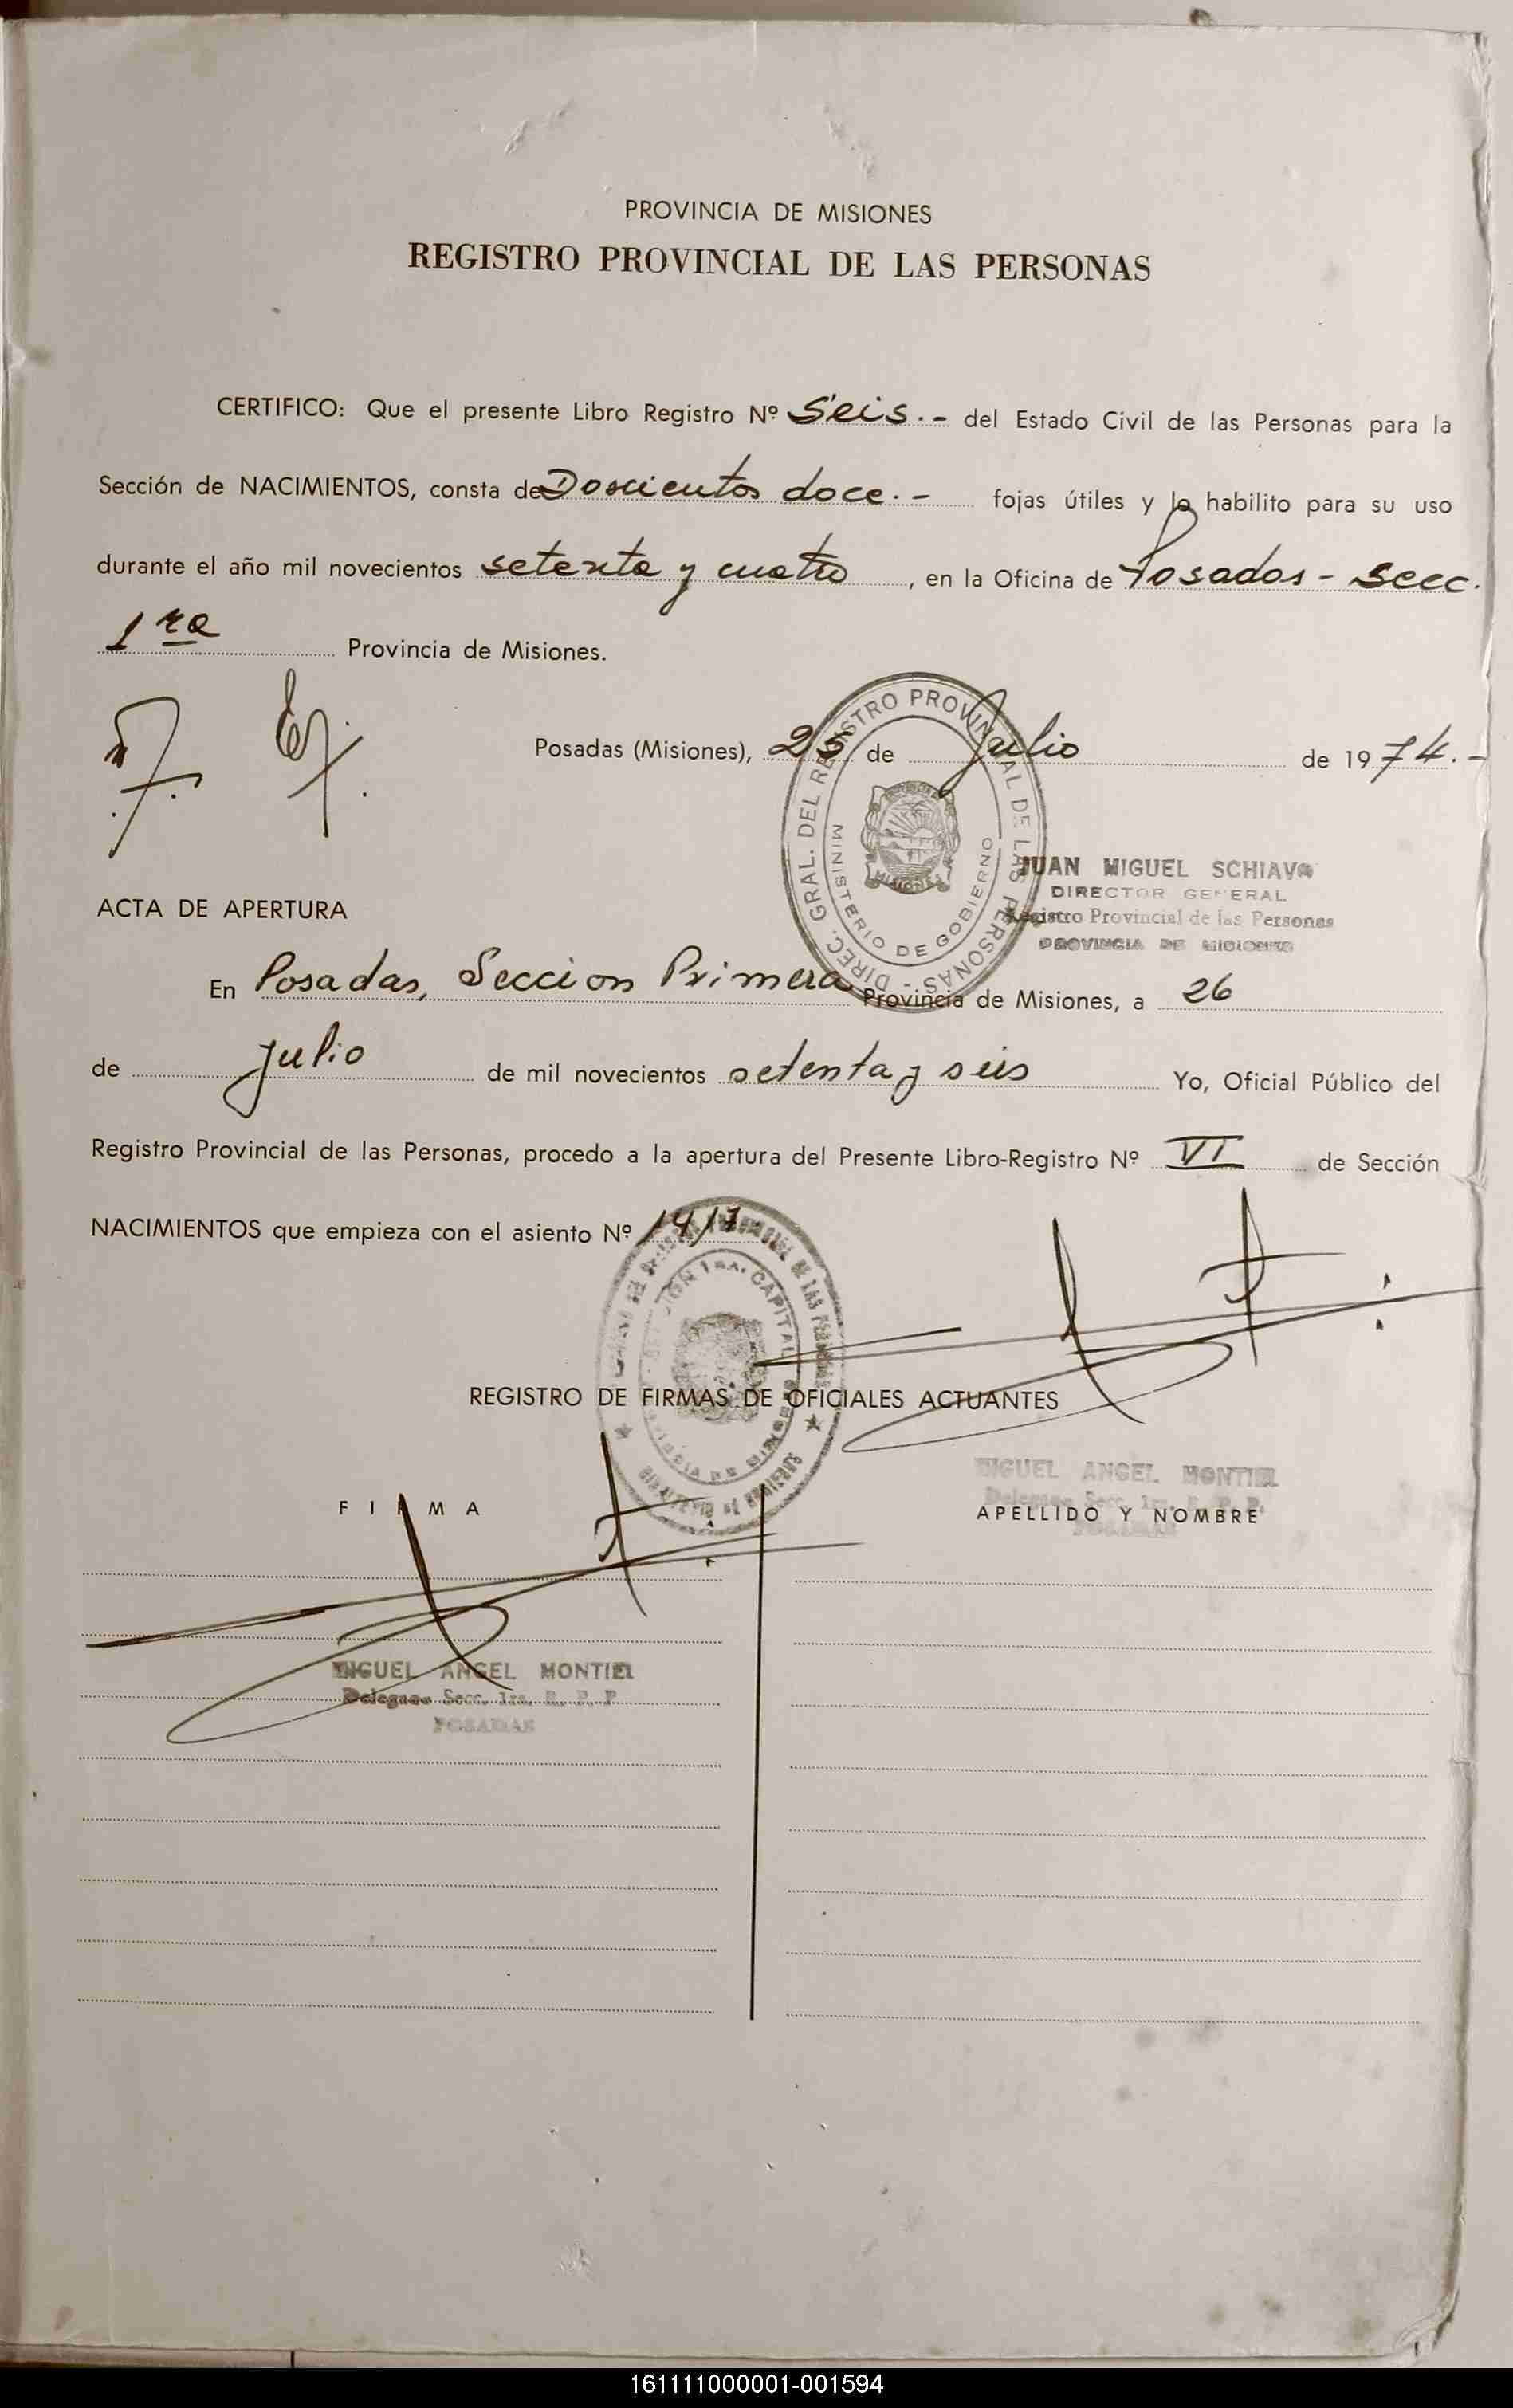 PROVINCIA DE MISIONES
REGISTRO PROVINCIAL DE LAS PERSONAS
CERTIFICO: Que el presente Libro Registro Nº Seis.- del Estado Civil de las Personas para la
Sección de NACIMIENTOS, consta de Doscientos doce.- fojas útiles y lo habilito para su uso
durante el año mil novecientos setenta y cuatro, en la Oficina de Posadas - Secc.
1ra Provincia de Misiones.
Posadas (Misiones), 25 de Julio de 1974.-
DIREC. GRAL. DEL REGISTRO PROVINCIAL DE LAS PERSONAS -
MINISTERIO DE GOBIERNO
MISIONES
JUAN MIGUEL SCHIAVO
DIRECTOR GENERAL
Registro Provincial de las Personas
PROVINCIA DE MISIONES
ACTA DE APERTURA
En Posadas, Seccion Primera Provincia de Misiones, a 26
de Julio de mil novecientos setenta y seis Yo, Oficial Público del
Registro Provincial de las Personas, procedo a la apertura del Presente Libro-Registro Nº VI de Sección
NACIMIENTOS que empieza con el asiento Nº 1417
DE LAS PERSONAS
1ra. CAPITAL
REGISTRO DE FIRMAS DE OFICIALES ACTUANTES
MIGUEL ANGEL MONTIEL
Delegado Secc. 1ra. R. P. P.
POSADAS
FIRMA
APELLIDO Y NOMBRE
MIGUEL ANGEL MONTIEL
Delegado Secc. 1ra. R. P. P.
POSADAS
161111000001-001594